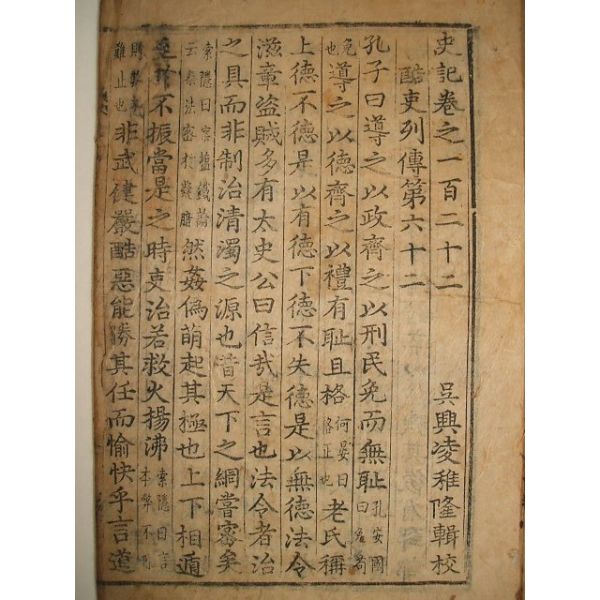 史記卷之一百二十二 吳興凌稚隆輯校
酷吏列傳第六十二
孔子曰導之以政齊之以刑民免而無耻孔安國曰苟
免也導之以德齊之以禮有耻且格何晏曰格正也老氏稱
上德不德是以有德下德不失德是以無德法令
滋章盜賊多有太史公曰信哉是言也法令者治
之具而非制治清濁之源也昔天下之網嘗密矣
索隱曰案鹽鐵論云秦法密於凝脂然姦偽萌起其極也上下相遁
至於不振當是之時吏治若救火揚沸索隱曰言本弊不
則末難止也非武健嚴酷惡能勝其任而愉快乎言道